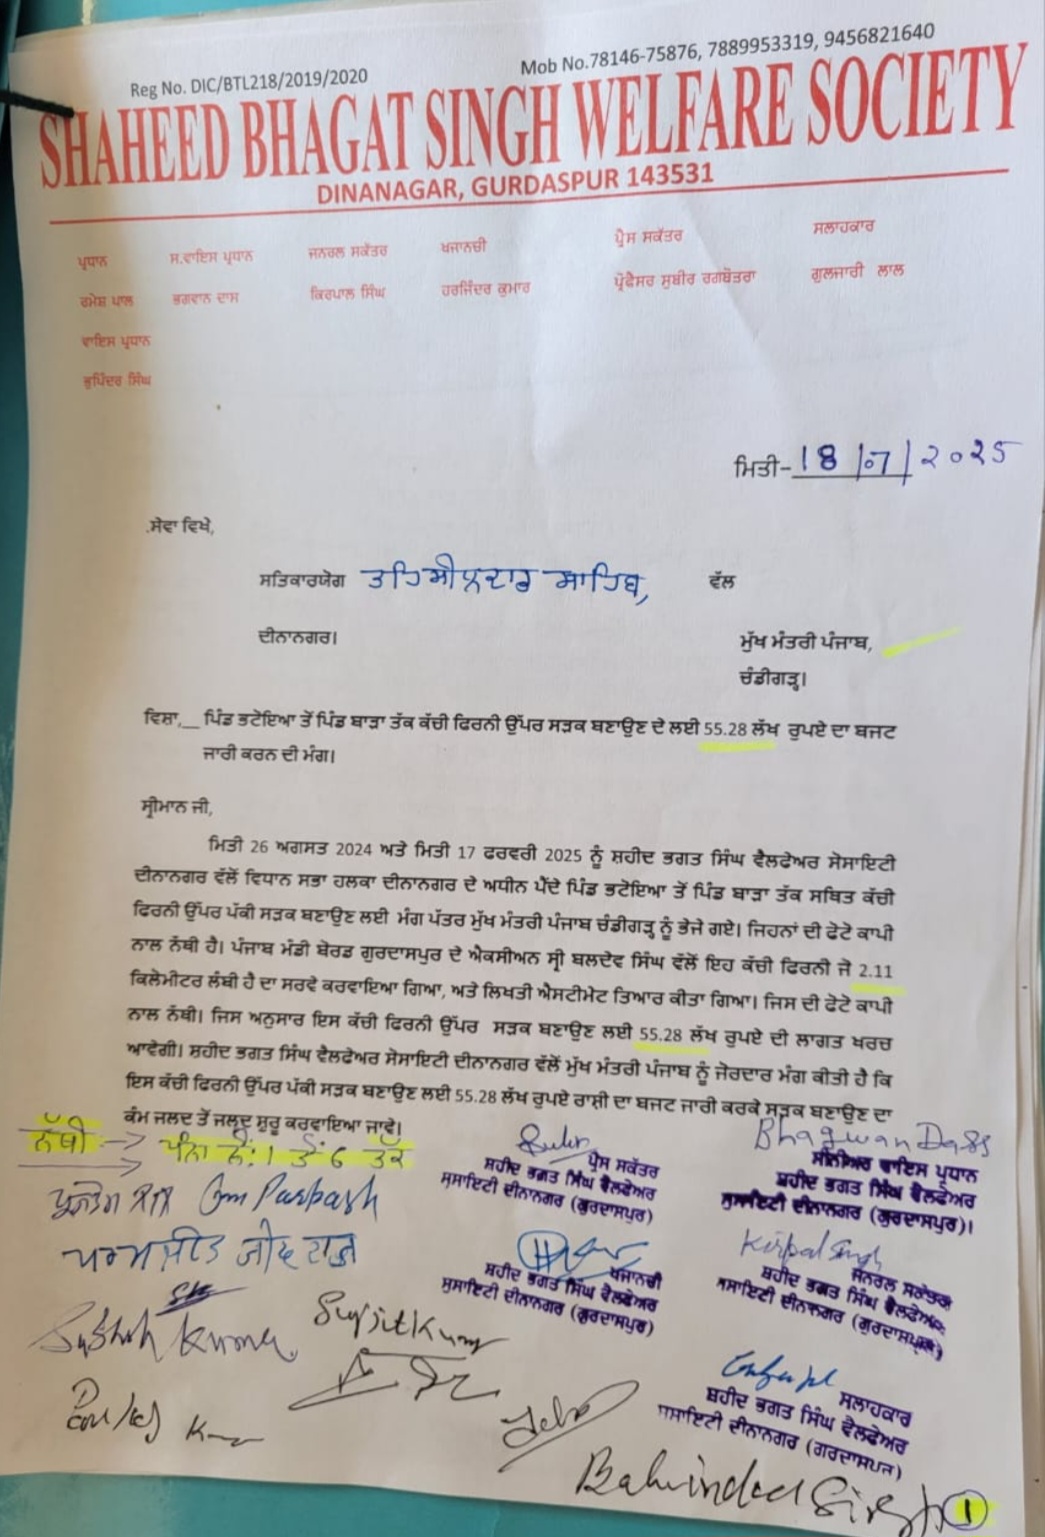 Reg No. DIC/BTL218/2019/2020
Mob No.78146-75876, 7889953319, 9456821640
SHAHEED BHAGAT SINGH WELFARE SOCIETY
DINANAGAR, GURDASPUR 143531
ਪ੍ਰਧਾਨ ਸ.ਵਾਇਸ ਪ੍ਰਧਾਨ ਜਨਰਲ ਸਕੱਤਰ ਖਜਾਨਚੀ ਪ੍ਰੈਸ ਸਕੱਤਰ ਸਲਾਹਕਾਰ
ਰਮੇਸ਼ ਪਾਲ ਭਗਵਾਨ ਦਾਸ ਕਿਰਪਾਲ ਸਿੰਘ ਹਰਜਿੰਦਰ ਕੁਮਾਰ ਪ੍ਰੋਫੈਸਰ ਸੁਬੀਰ ਰਗਬੋਤਰਾ ਗੁਲਜਾਰੀ ਲਾਲ
ਵਾਇਸ ਪ੍ਰਧਾਨ
ਭੁਪਿੰਦਰ ਸਿੰਘ
ਮਿਤੀ-18/07/2025
.ਸੇਵਾ ਵਿਖੇ,
ਸਤਿਕਾਰਯੋਗ ਤਹਿਸੀਲਦਾਰ ਸਾਹਿਬ, ਵੱਲ
ਦੀਨਾਨਗਰ।
ਮੁੱਖ ਮੰਤਰੀ ਪੰਜਾਬ,
ਚੰਡੀਗੜ੍ਹ।
ਵਿਸ਼ਾ,__ ਪਿੰਡ ਭਟੋਇਆ ਤੋਂ ਪਿੰਡ ਬਾੜਾ ਤੱਕ ਕੱਚੀ ਫਿਰਨੀ ਉੱਪਰ ਸੜਕ ਬਣਾਉਣ ਦੇ ਲਈ 55.28 ਲੱਖ ਰੁਪਏ ਦਾ ਬਜਟ
ਜਾਰੀ ਕਰਨ ਦੀ ਮੰਗ।
ਸ੍ਰੀਮਾਨ ਜੀ,
ਮਿਤੀ 26 ਅਗਸਤ 2024 ਅਤੇ ਮਿਤੀ 17 ਫਰਵਰੀ 2025 ਨੂੰ ਸ਼ਹੀਦ ਭਗਤ ਸਿੰਘ ਵੈਲਫੇਅਰ ਸੋਸਾਇਟੀ
ਦੀਨਾਨਗਰ ਵੱਲੋਂ ਵਿਧਾਨ ਸਭਾ ਹਲਕਾ ਦੀਨਾਨਗਰ ਦੇ ਅਧੀਨ ਪੈਂਦੇ ਪਿੰਡ ਭਟੋਇਆ ਤੋਂ ਪਿੰਡ ਬਾੜਾ ਤੱਕ ਸਥਿਤ ਕੱਚੀ
ਫਿਰਨੀ ਉੱਪਰ ਪੱਕੀ ਸੜਕ ਬਣਾਉਣ ਲਈ ਮੰਗ ਪੱਤਰ ਮੁੱਖ ਮੰਤਰੀ ਪੰਜਾਬ ਚੰਡੀਗੜ੍ਹ ਨੂੰ ਭੇਜੇ ਗਏ। ਜਿਹਨਾਂ ਦੀ ਫੋਟੋ ਕਾਪੀ
ਨਾਲ ਨੱਥੀ ਹੈ। ਪੰਜਾਬ ਮੰਡੀ ਬੋਰਡ ਗੁਰਦਾਸਪੁਰ ਦੇ ਐਕਸੀਅਨ ਸ੍ਰੀ ਬਲਦੇਵ ਸਿੰਘ ਵੱਲੋਂ ਇਹ ਕੱਚੀ ਫਿਰਨੀ ਜੋ 2.11
ਕਿਲੋਮੀਟਰ ਲੰਬੀ ਹੈ ਦਾ ਸਰਵੇ ਕਰਵਾਇਆ ਗਿਆ, ਅਤੇ ਲਿਖਤੀ ਐਸਟੀਮੇਟ ਤਿਆਰ ਕੀਤਾ ਗਿਆ। ਜਿਸ ਦੀ ਫੋਟੋ ਕਾਪੀ
ਨਾਲ ਨੱਥੀ। ਜਿਸ ਅਨੁਸਾਰ ਇਸ ਕੱਚੀ ਫਿਰਨੀ ਉੱਪਰ ਸੜਕ ਬਣਾਉਣ ਲਈ 55.28 ਲੱਖ ਰੁਪਏ ਦੀ ਲਾਗਤ ਖਰਚ
ਆਵੇਗੀ। ਸ਼ਹੀਦ ਭਗਤ ਸਿੰਘ ਵੈਲਫੇਅਰ ਸੋਸਾਇਟੀ ਦੀਨਾਨਗਰ ਵੱਲੋਂ ਮੁੱਖ ਮੰਤਰੀ ਪੰਜਾਬ ਨੂੰ ਜੋਰਦਾਰ ਮੰਗ ਕੀਤੀ ਹੈ ਕਿ
ਇਸ ਕੱਚੀ ਫਿਰਨੀ ਉੱਪਰ ਪੱਕੀ ਸੜਕ ਬਣਾਉਣ ਲਈ 55.28 ਲੱਖ ਰੁਪਏ ਰਾਸ਼ੀ ਦਾ ਬਜਟ ਜਾਰੀ ਕਰਕੇ ਸੜਕ ਬਣਾਉਣ ਦਾ
ਕੰਮ ਜਲਦ ਤੋਂ ਜਲਦ ਸ਼ੁਰੂ ਕਰਵਾਇਆ ਜਾਵੇ।
ਨੱਥੀ → ਪੰਨਾ ਨੰ: 1 ਤੋਂ 6 ਤੱਕ
Bhagwan Dass
ਪ੍ਰੈਸ ਸਕੱਤਰ
ਸ਼ਹੀਦ ਭਗਤ ਸਿੰਘ ਵੈਲਫੇਅਰ
ਸੁਸਾਇਟੀ ਦੀਨਾਨਗਰ (ਗੁਰਦਾਸਪੁਰ)
ਸੀਨੀਅਰ ਵਾਇਸ ਪ੍ਰਧਾਨ
ਸ਼ਹੀਦ ਭਗਤ ਸਿੰਘ ਵੈਲਫੇਅਰ
ਸੁਸਾਇਟੀ ਦੀਨਾਨਗਰ (ਗੁਰਦਾਸਪੁਰ)।
Om Parkash
ਪਰਮਜੀਤ
ਖਜਾਨਚੀ
ਸ਼ਹੀਦ ਭਗਤ ਸਿੰਘ ਵੈਲਫੇਅਰ
ਸੁਸਾਇਟੀ ਦੀਨਾਨਗਰ (ਗੁਰਦਾਸਪੁਰ)
Kirpal Singh
ਜਨਰਲ ਸਕੱਤਰ
ਸ਼ਹੀਦ ਭਗਤ ਸਿੰਘ ਵੈਲਫੇਅਰ
ਸਾਇਟੀ ਦੀਨਾਨਗਰ (ਗੁਰਦਾਸਪੁਰ)
Surjit Kumar
ਸਲਾਹਕਾਰ
ਸ਼ਹੀਦ ਭਗਤ ਸਿੰਘ ਵੈਲਫੇਅਰ
ਸਾਇਟੀ ਦੀਨਾਨਗਰ (ਗੁਰਦਾਸਪੁਰ)
1